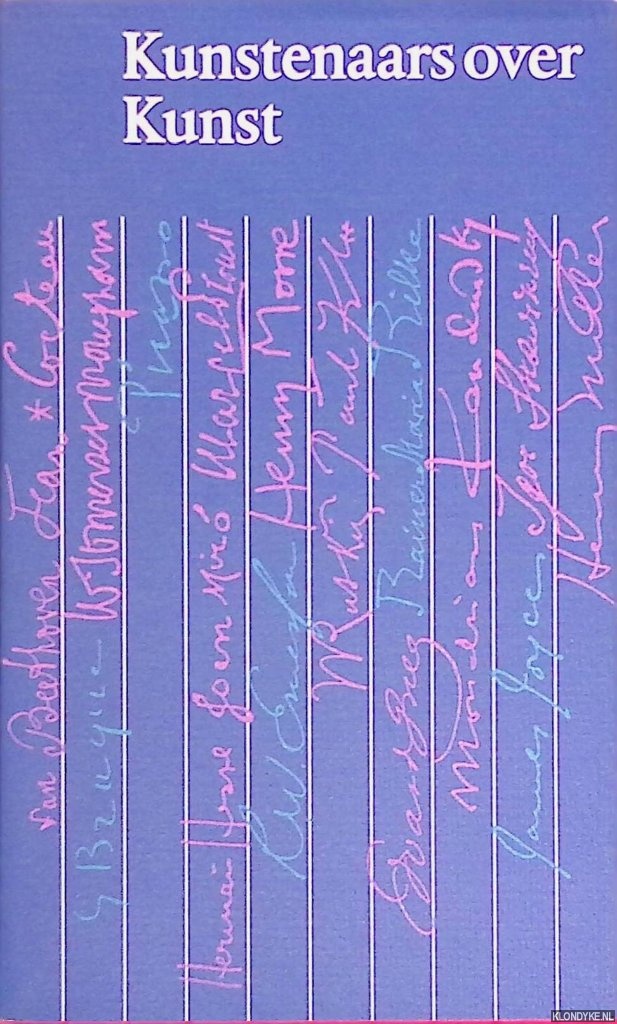 Kunstenaars over
Kunst
van Beethoven Jean * Cocteau
G Braque W Somerset Maugham
Picasso
Hermann Hesse Joan Miró
R.W. Emerson Henry Moore
W Ruskin Paul Klee
Edvard Grieg Rainer Maria Rilke
Mondriaan Kandinsky
James Joyce Igor Strawinsky
Henry Miller
KLONDYKE.NL